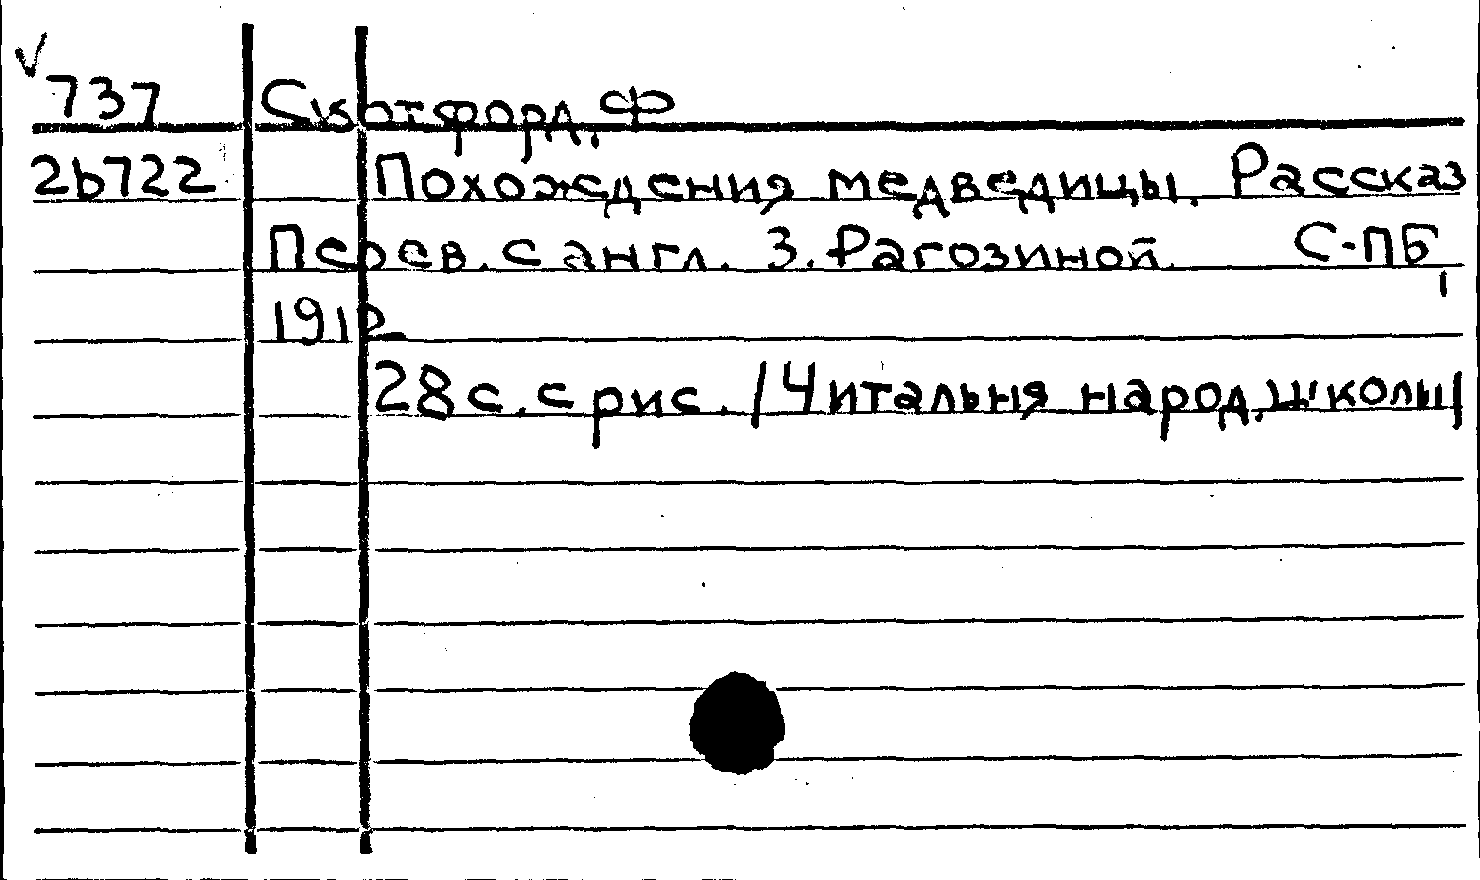 737 Скотфорд, Ф
2b722 Похождения медведицы. Рассказ
Перев. с англ. З. Рагозиной. С-ПБ,
1912
28 с. с рис. /Читальня народ. школы/